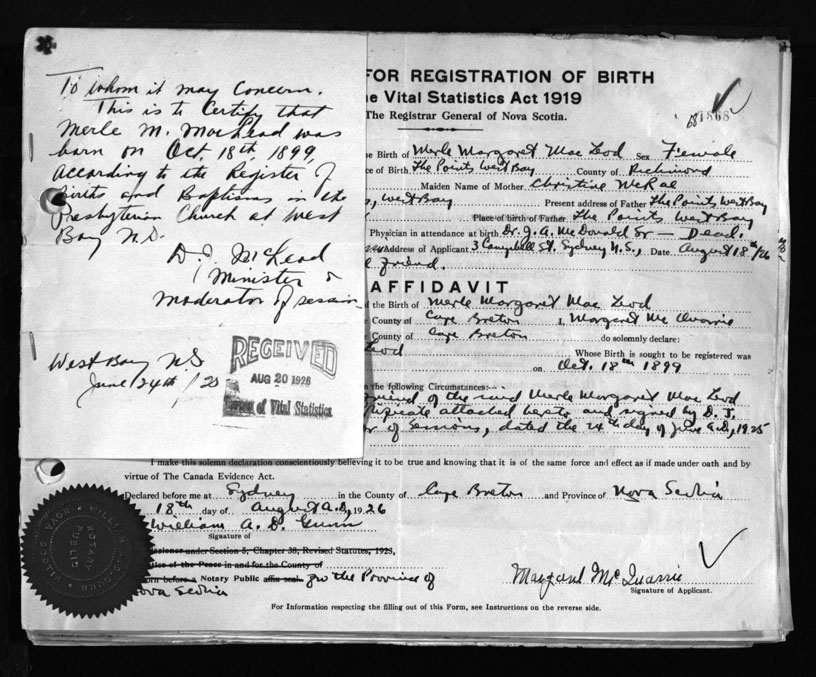 To whom it may Concern.
This is to Certify that
Merle M. MacLeod was
born on Oct. 18th, 1899,
according to the Register of
Births and Baptisms in the
Presbyterian Church at West
Bay N.S.
D. J. McLeod
Minister &
moderator of session
West Bay N.S
June 24th, /25
RECEIVED
AUG 20 1926
of Vital Statistics
FOR REGISTRATION OF BIRTH
Vital Statistics Act 1919
The Registrar General of Nova Scotia.
Birth of Merle Margaret Mac Leod Sex Female
of Birth The Points West Bay County of Richmond
Maiden Name of Mother Christine McRae
West Bay Present address of Father The Points West Bay
Place of birth of Father The Points West Bay
Physician in attendance at birth Dr. J. A. McDonald Sr — Dead.
Address of Applicant 3 Campbell St. Sydney N.S., Date August 18th/26
friend.
AFFIDAVIT
of the Birth of Merle Margaret Mac Leod
County of Cape Breton I, Margaret Mc Quarrie
County of Cape Breton do solemnly declare:
Leod Whose Birth is sought to be registered was
on Oct. 18th 1899
the following Circumstances:—
friend of the said Merle Margaret Mac Leod
attached hereto and signed by D. J.
of Sessions, dated the 24th day of June A.D., 1925
I make this solemn declaration conscientiously believing it to be true and knowing that it is of the same force and effect as if made under oath and by
virtue of The Canada Evidence Act.
Declared before me at Sydney in the County of Cape Breton and Province of Nova Scotia
18th day of August A.D., 1926
William A. D. Gunn
Signature of
under Section 5, Chapter 38, Revised Statutes, 1923,
of the Peace in and for the County of
before a Notary Public affix seal. for the Province of
Nova Scotia
NOTARY
PUBLIC
Margaret McQuarrie
Signature of Applicant.
For Information respecting the filling out of this Form, see Instructions on the reverse side.